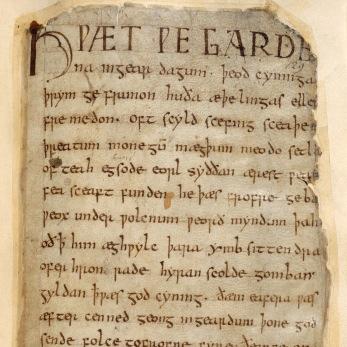 HǷÆT ǷE GARDE
na ingear dagum. þeod cyninga
þrym ge frunon huða æþelingas elle
fre medon. oft scyld scefing sceaþe
þreatum monegū mægþum meodo setla
of teah egsode eorl syððan ærest ƿear
fea sceaft funden he þæs frofre geba
ƿeox under ƿolcnum ƿeorð myndum þah
oð ꝥ him æghƿylc þara ymb sittendra
ofer hron rade hyran scolde gomban
gyldan ꝥ ƿæs god cyning. ðæm eafera ƿæs
æfter cenned geong ingeardum þone god
sende folce tofrofre fyren